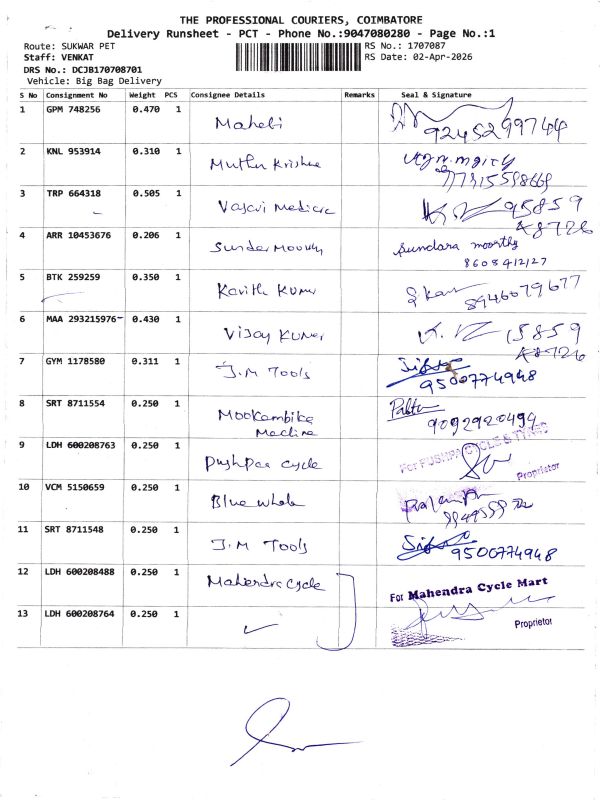 THE PROFESSIONAL COURIERS, COIMBATORE
Delivery Runsheet - PCT - Phone No.:9047080280 - Page No.:1
Route: SUKWAR PET RS No.: 1707087
Staff: VENKAT RS Date: 02-Apr-2026
DRS No.: DCJB170708701
Vehicle: Big Bag Delivery
S No Consignment No Weight PCS Consignee Details Remarks Seal & Signature
1 GPM 748256 0.470 1 Mahebi
9245299744
2 KNL 953914 0.310 1 Muthu Krishna
3 TRP 664318 0.505 1 95859
48726
4 ARR 10453676 0.206 1 Sunder Moorthy Sundara moorthy
8608412127
5 BTK 259259 0.350 1 Kavith Kumar
8946079677
6 MAA 293215976 0.430 1 Vijay Kumar 15859
48726
7 GYM 1178580 0.311 1 J.M Tools
9500774948
8 SRT 8711554 0.250 1 Mookambike
Macline 9092920494
9 LDH 600208763 0.250 1 Pushpaa cycle For PUSHPA CYCLE & TYRES
Proprietor
10 VCM 5150659 0.250 1 Blue whale
11 SRT 8711548 0.250 1 J.M Tools
9500774948
12 LDH 600208488 0.250 1 Mahendra Cycle For Mahendra Cycle Mart
13 LDH 600208764 0.250 1 Proprietor